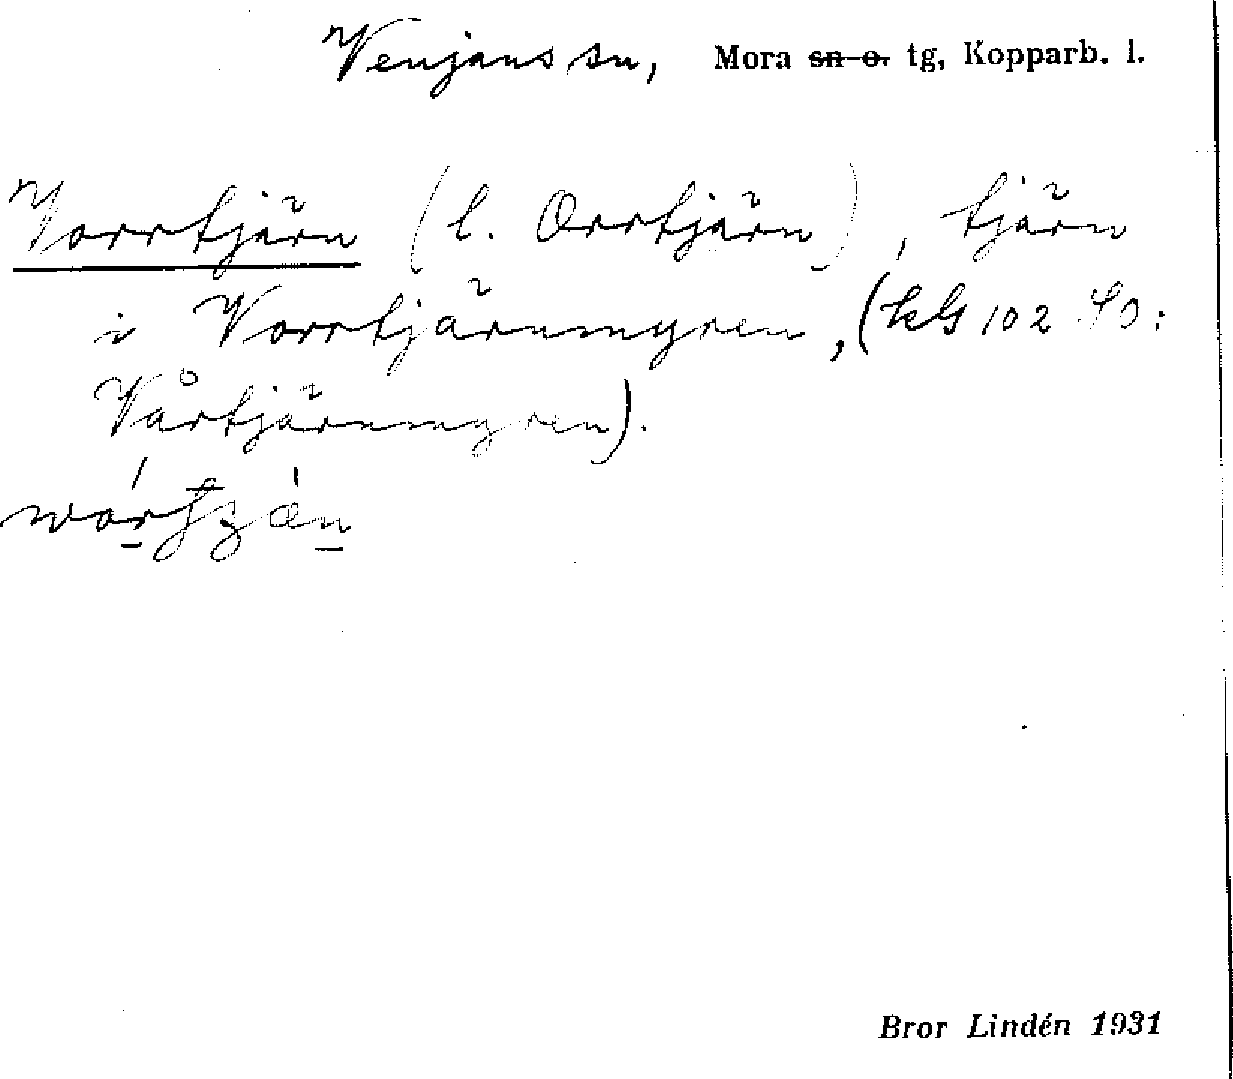 Venjans sn, Mora sn o. tg, Kopparb. l.
Vorrtjärn (l. Orrtjärn), tjärn
i Vorrtjärnmyren, (kbl 102 SO:
Vårtjärnmyren).
Bror Lindén 1931